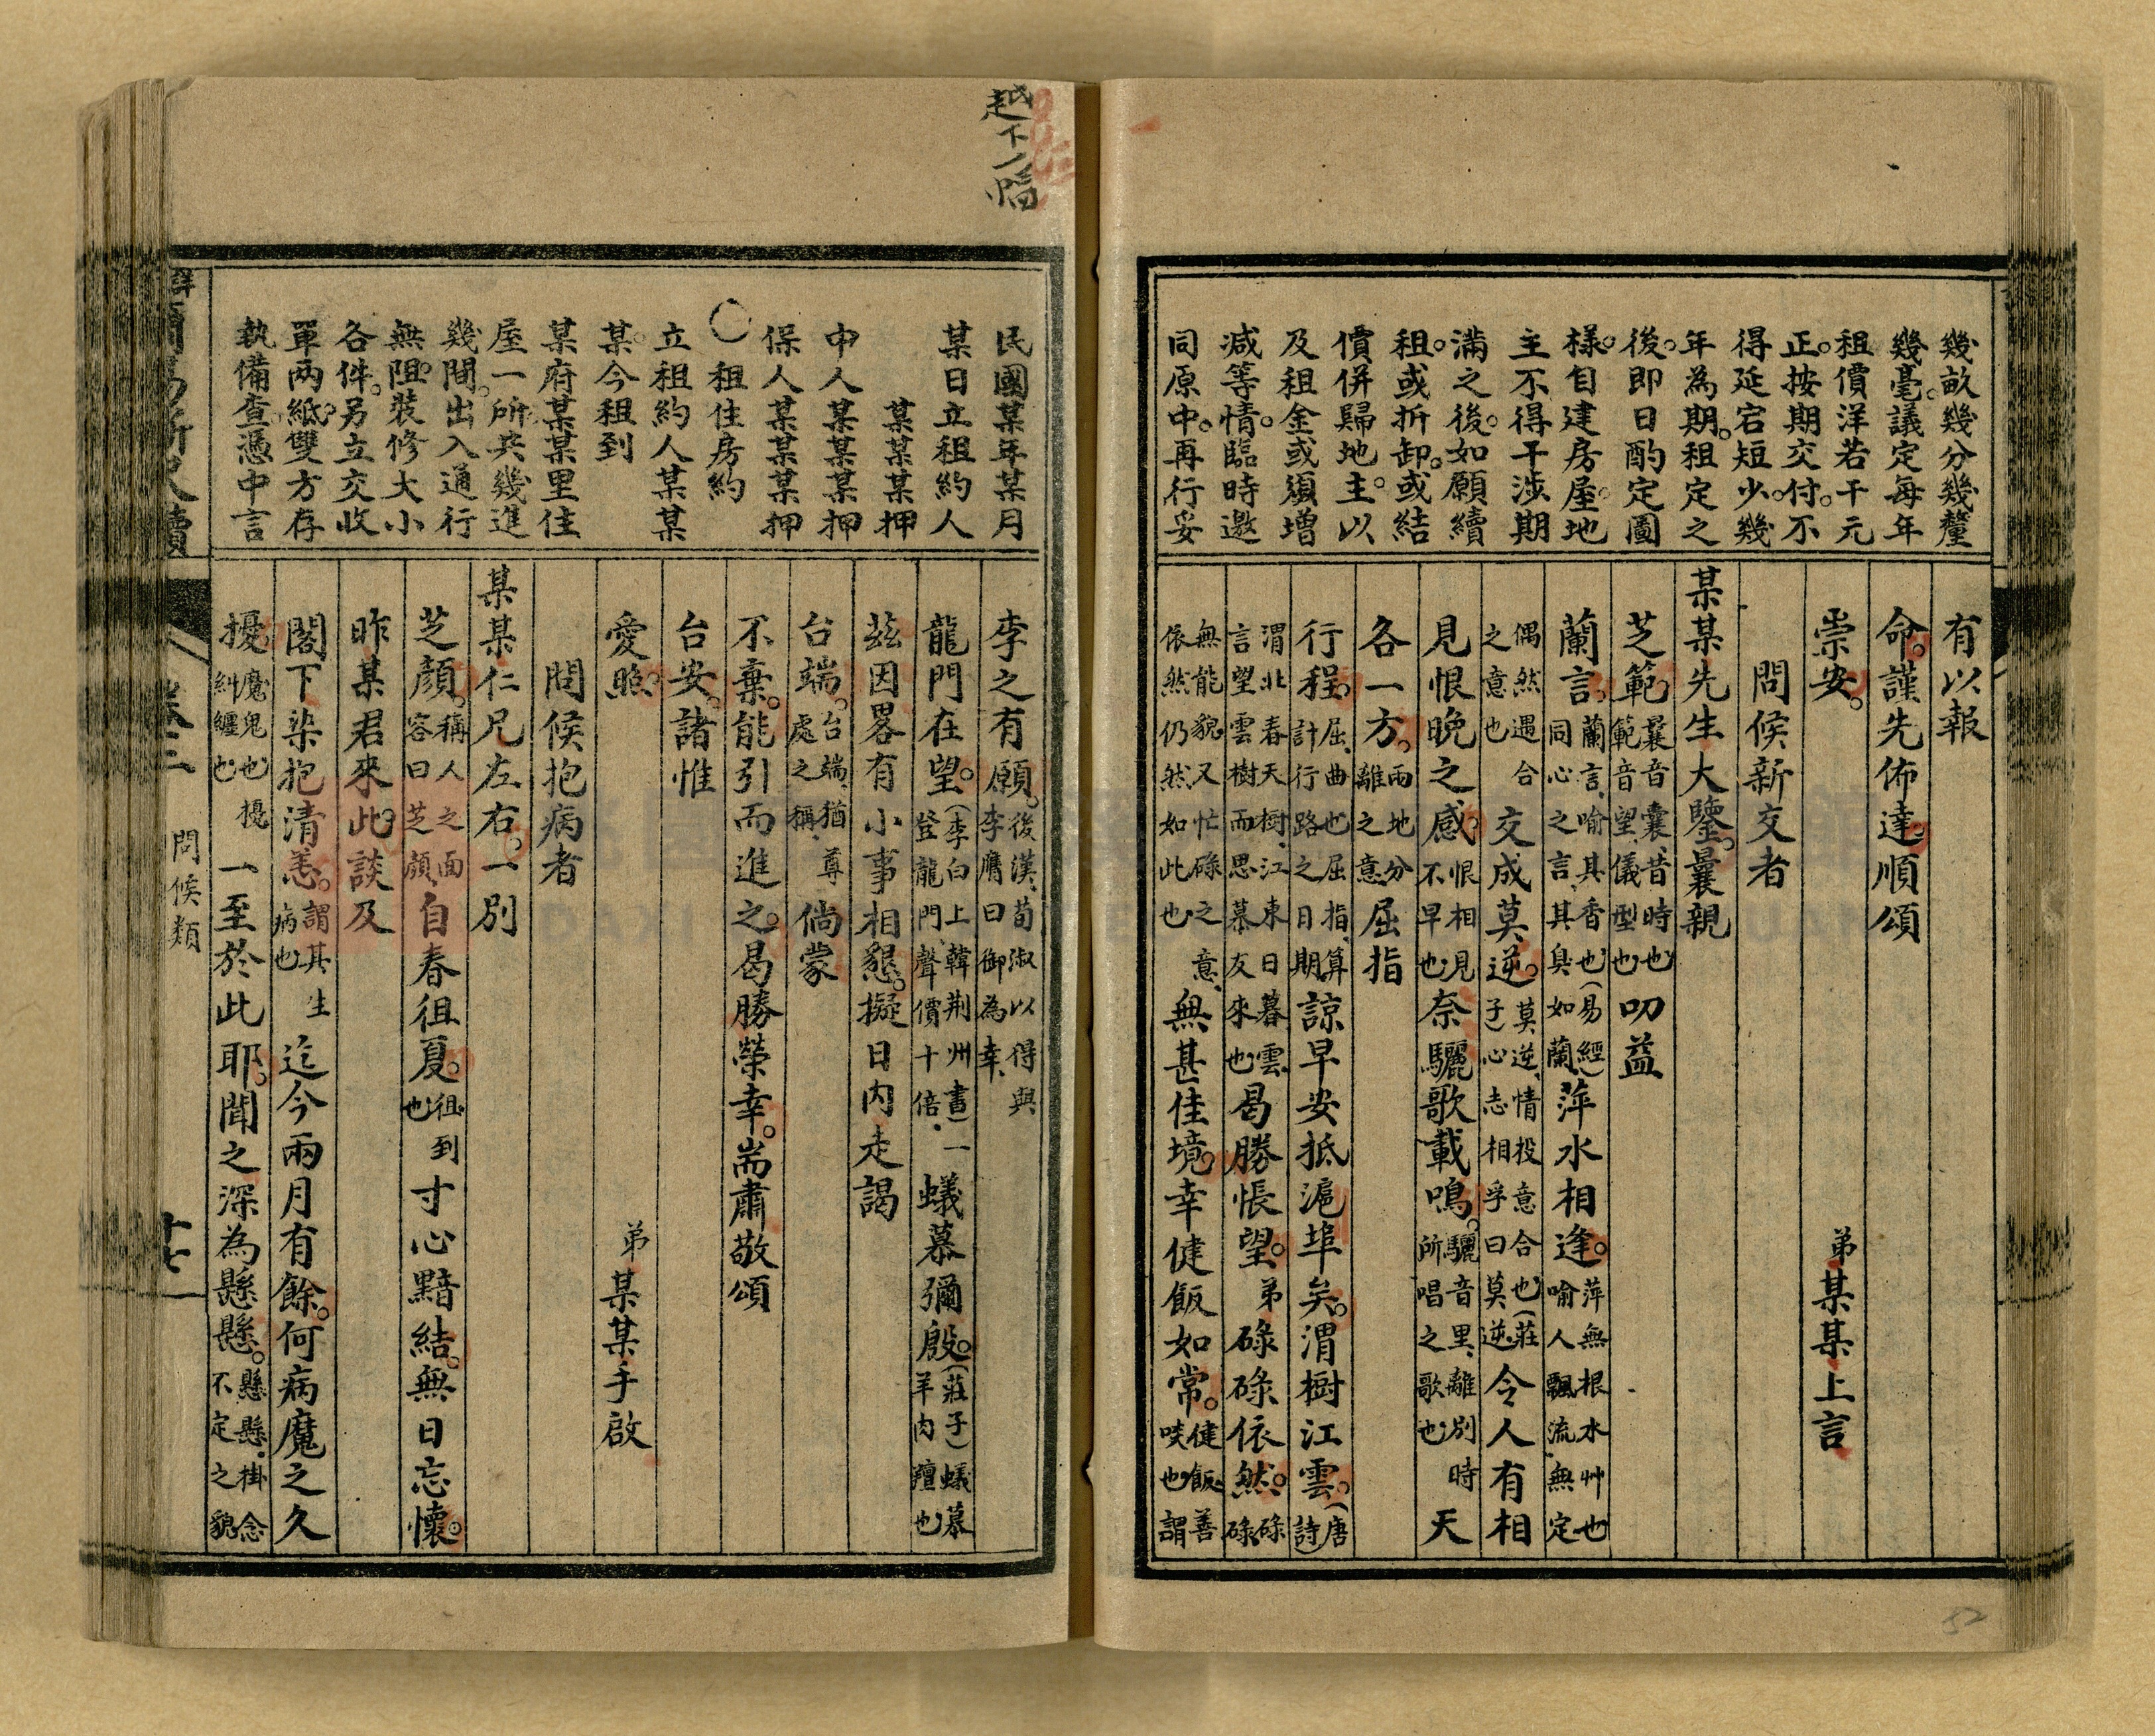 幾畝幾分幾釐
幾毫。議定每年
租價洋若干元
正。按期交付。不
得延宕短少。幾
年為期。租定之
後。即日酌定圖
樣。自建房屋。地
主不得干涉。期
滿之後。如願續
租。或折卸。或結
價併歸地主。以
及租金或須增
減等情。臨時邀
同原中。再行妥
有以報
命。謹先佈達。順頌
崇安。
弟某某上言
問候新交者
某某先生大鑒。曩親
芝範。曩音囊、昔時也範音望、儀型也叨益
蘭言。蘭言、喻其香也(易經)同心之言、其臭如蘭、萍水相逢。萍無根水艸也喻人飄流無定
偶然遇合之意也交成莫逆。莫逆、情投意合也(莊子)心志相孚曰莫逆、令人有相
見恨晚之感。恨相見不早也奈驪歌載鳴。驪音里、離別時所唱之歌也天
各一方。兩地分離之意屈指
行程。屈、曲也屈指、算計行路之日期、諒早安抵滬埠矣。渭樹江雲。(唐詩)
渭北春天樹、江東日暮雲、言望雲樹而思慕友來也曷勝悵望。弟碌碌依然。碌碌、
無能貌又忙碌之意、依然仍然如此也無甚佳境。幸健飯如常。健飯、善啖也謂
52
越下一幅
民國某年某月
某日立租約人
某某某押
中人某某某押
保人某某某押
〇租住房約
立租約人某某
某。今租到
某府某某里住
屋一所。共幾進
幾間。出入通行
無阻。裝修大小
各件。另立交收
單兩紙。雙方存
執備查。憑中言
李之有願。後漢、荀淑以得與李膺曰御為幸、
龍門在望。(李白上韓荆州書)一登龍門、聲價十倍、蟻慕彌殷。(莊子)蟻慕羊肉羶也
茲因畧有小事相懇。擬日内走謁
台端。台端、猶尊處之稱、倘蒙
不棄。能引而進之。曷勝榮幸。耑肅敬頌
台安。諸惟
愛照。
弟某某手啟
問候抱病者
某某仁兄左右。一別
芝顏。稱人之面容曰芝顏、自春徂夏。徂、到也寸心黯結。無日忘懷。
昨某君來此。談及
閣下染抱清恙。謂其生病也迄今兩月有餘。何病魔之久
擾。魔鬼也擾糾纏也一至於此耶。聞之深為懸懸。懸懸、掛念不定之貌
問候類